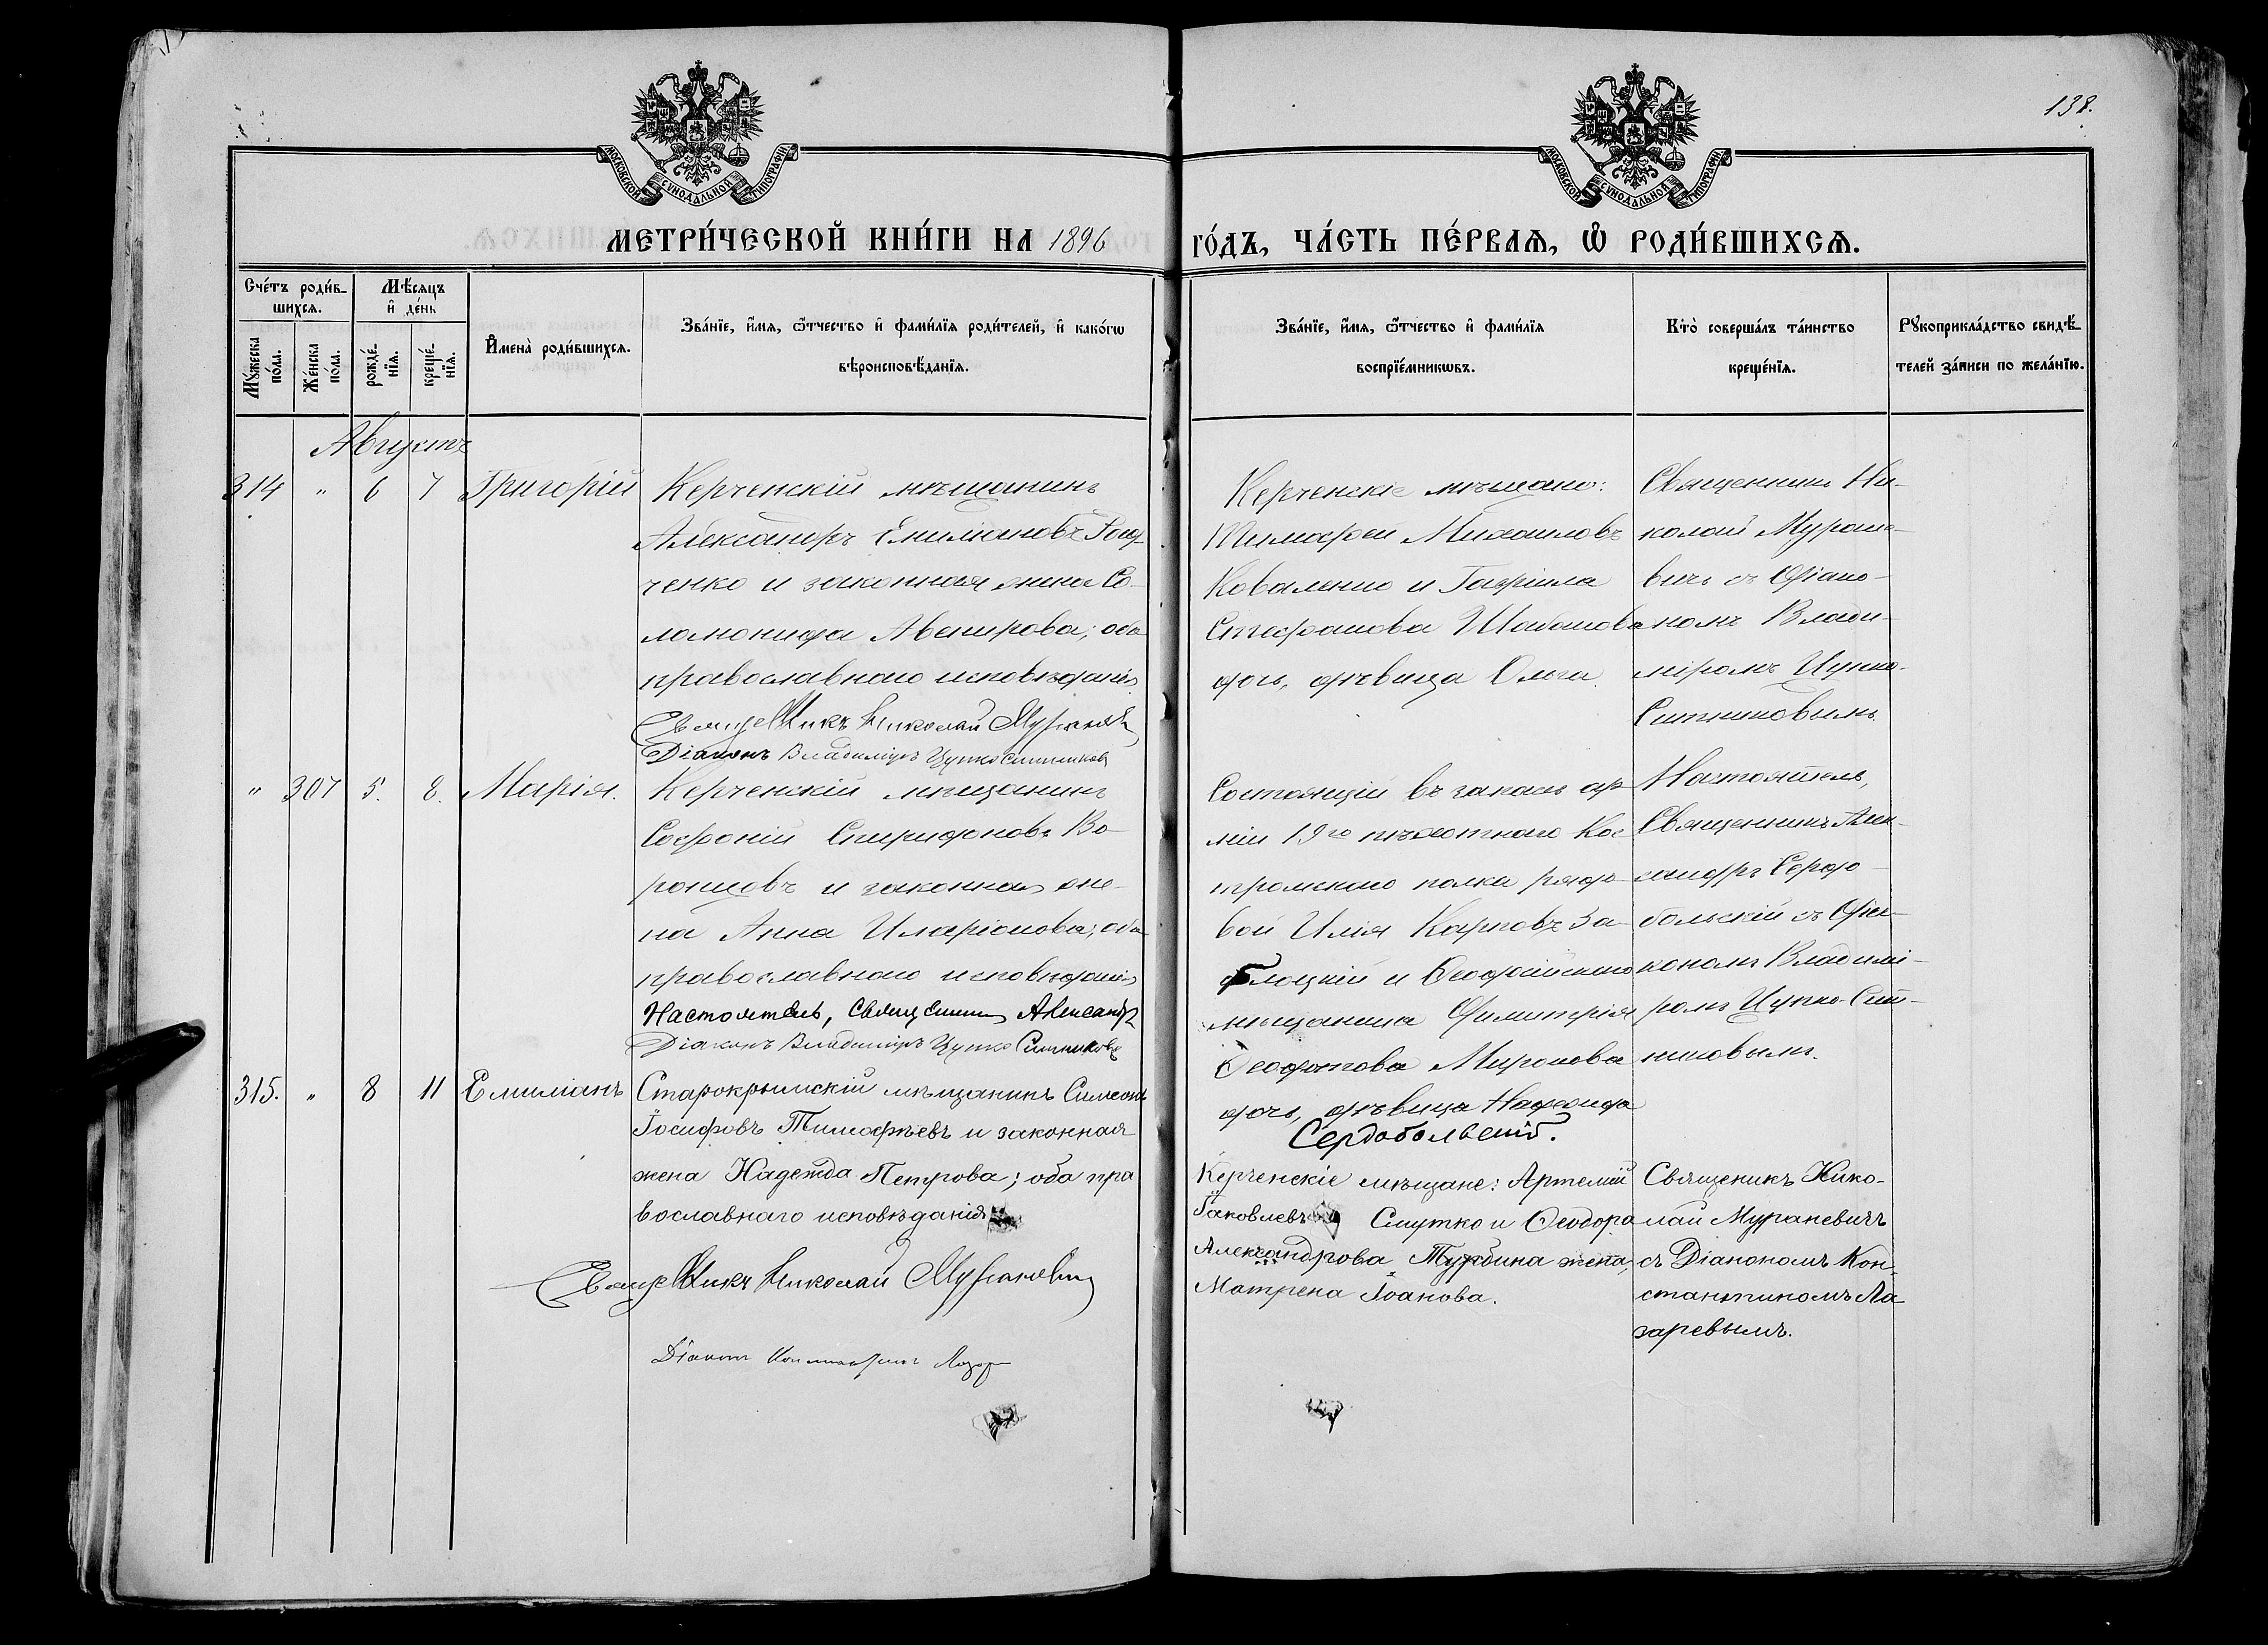 138.
МОСКОВСКОЙ СѴНОДАЛЬНОЙ ТИПОГРАФІИ
МОСКОВСКОЙ СѴНОДАЛЬНОЙ ТИПОГРАФІИ
МЕТРИ́ЧЕСКОЙ КНИ́ГИ НА 1896 ГО́ДЪ, ЧА́СТЬ ПЕ́РВАѦ, Ѽ РОДИ́ВШИХСѦ.
Сче́тъ роди́в-
шихсѧ.
Мꙋ́жеска по́ла.
Же́нска по́ла.
Мѣ́сяцъ
и҆ де́нь
рожде́-
нїѧ.
креще́-
нїѧ.
И҆мена̀ роди́вшихсѧ.
Зва́нїе, и҆́мѧ, ѻ҆́тчество и҆ фами́лїѧ роди́телей, и҆ како́гѡ
вѣроисповѣ́данїѧ.
Зва́нїе, и҆́мѧ, ѻ҆́тчество и҆ фами́лїѧ
воспрїе́мникѡвъ.
Кто̀ соверша́лъ та́инство
креще́нїѧ.
Рꙋкоприкла́дство свидѣ́-
телей за́писи по жела́нїю.
Августъ
314 " 6 7 Григорій
Керченскій мѣщанинъ
Александръ Емиліановъ
ченко и законная жена Со-
ломонида Авенирова; оба
православнаго исповѣданія
Священникъ Николай Мураневичъ
Діаконъ Владиміръ Цупко Ситниковъ
Керченскіе мѣщане:
Тимофей Михаиловъ
Коваленко и Гавріила
Стефанова Шабанова
дочь, дѣвица Ольга.
Священникъ Ни-
колай Муране-
вичъ съ Діако-
номъ Влади-
міромъ Цупко-
Ситниковымъ
" 307 5. 8. Марія.
Керченскій мѣщанинъ
Софроній Спиридоновъ Во-
ронцовъ и законная же-
на Анна Иларіонова; оба
православнаго исповѣданія
Настоятель, Священникъ Александръ
Діаконъ Владиміръ Цупко Ситниковъ
Состоящій въ запасѣ ар-
міи 19го пѣхотнаго Кос-
тромскаго полка рядо-
вой Илія Карповъ За-
блоцкій и Ѳеодосійскаго
мѣщанина Димитрія
Миронова
дочь, дѣвица Надежда
Сердобольскій.
Настоятель,
Священникъ Алек-
сандръ Сердо-
больскій съ Діа-
кономъ Владимі-
ромъ Цупко-Сит-
никовымъ.
315. " 8 11 Емиліанъ
Старокрымскій мѣщанинъ Симеонъ
Іосифовъ Тимофѣевъ и законная
жена Надежда Петрова; оба пра
вославнаго исповѣданія
Священникъ Николай Мураневичъ
Діаконъ Константинъ Лазаревъ
Керченскіе мѣщане: Артемій
Іаковлевъ Смутко и Ѳеодора
Александрова Турбина жена,
Матрена Іоанова.
Священикъ Нико-
лай Мураневичъ
съ Діакономъ Кон-
стантиномъ Ла
заревымъ.